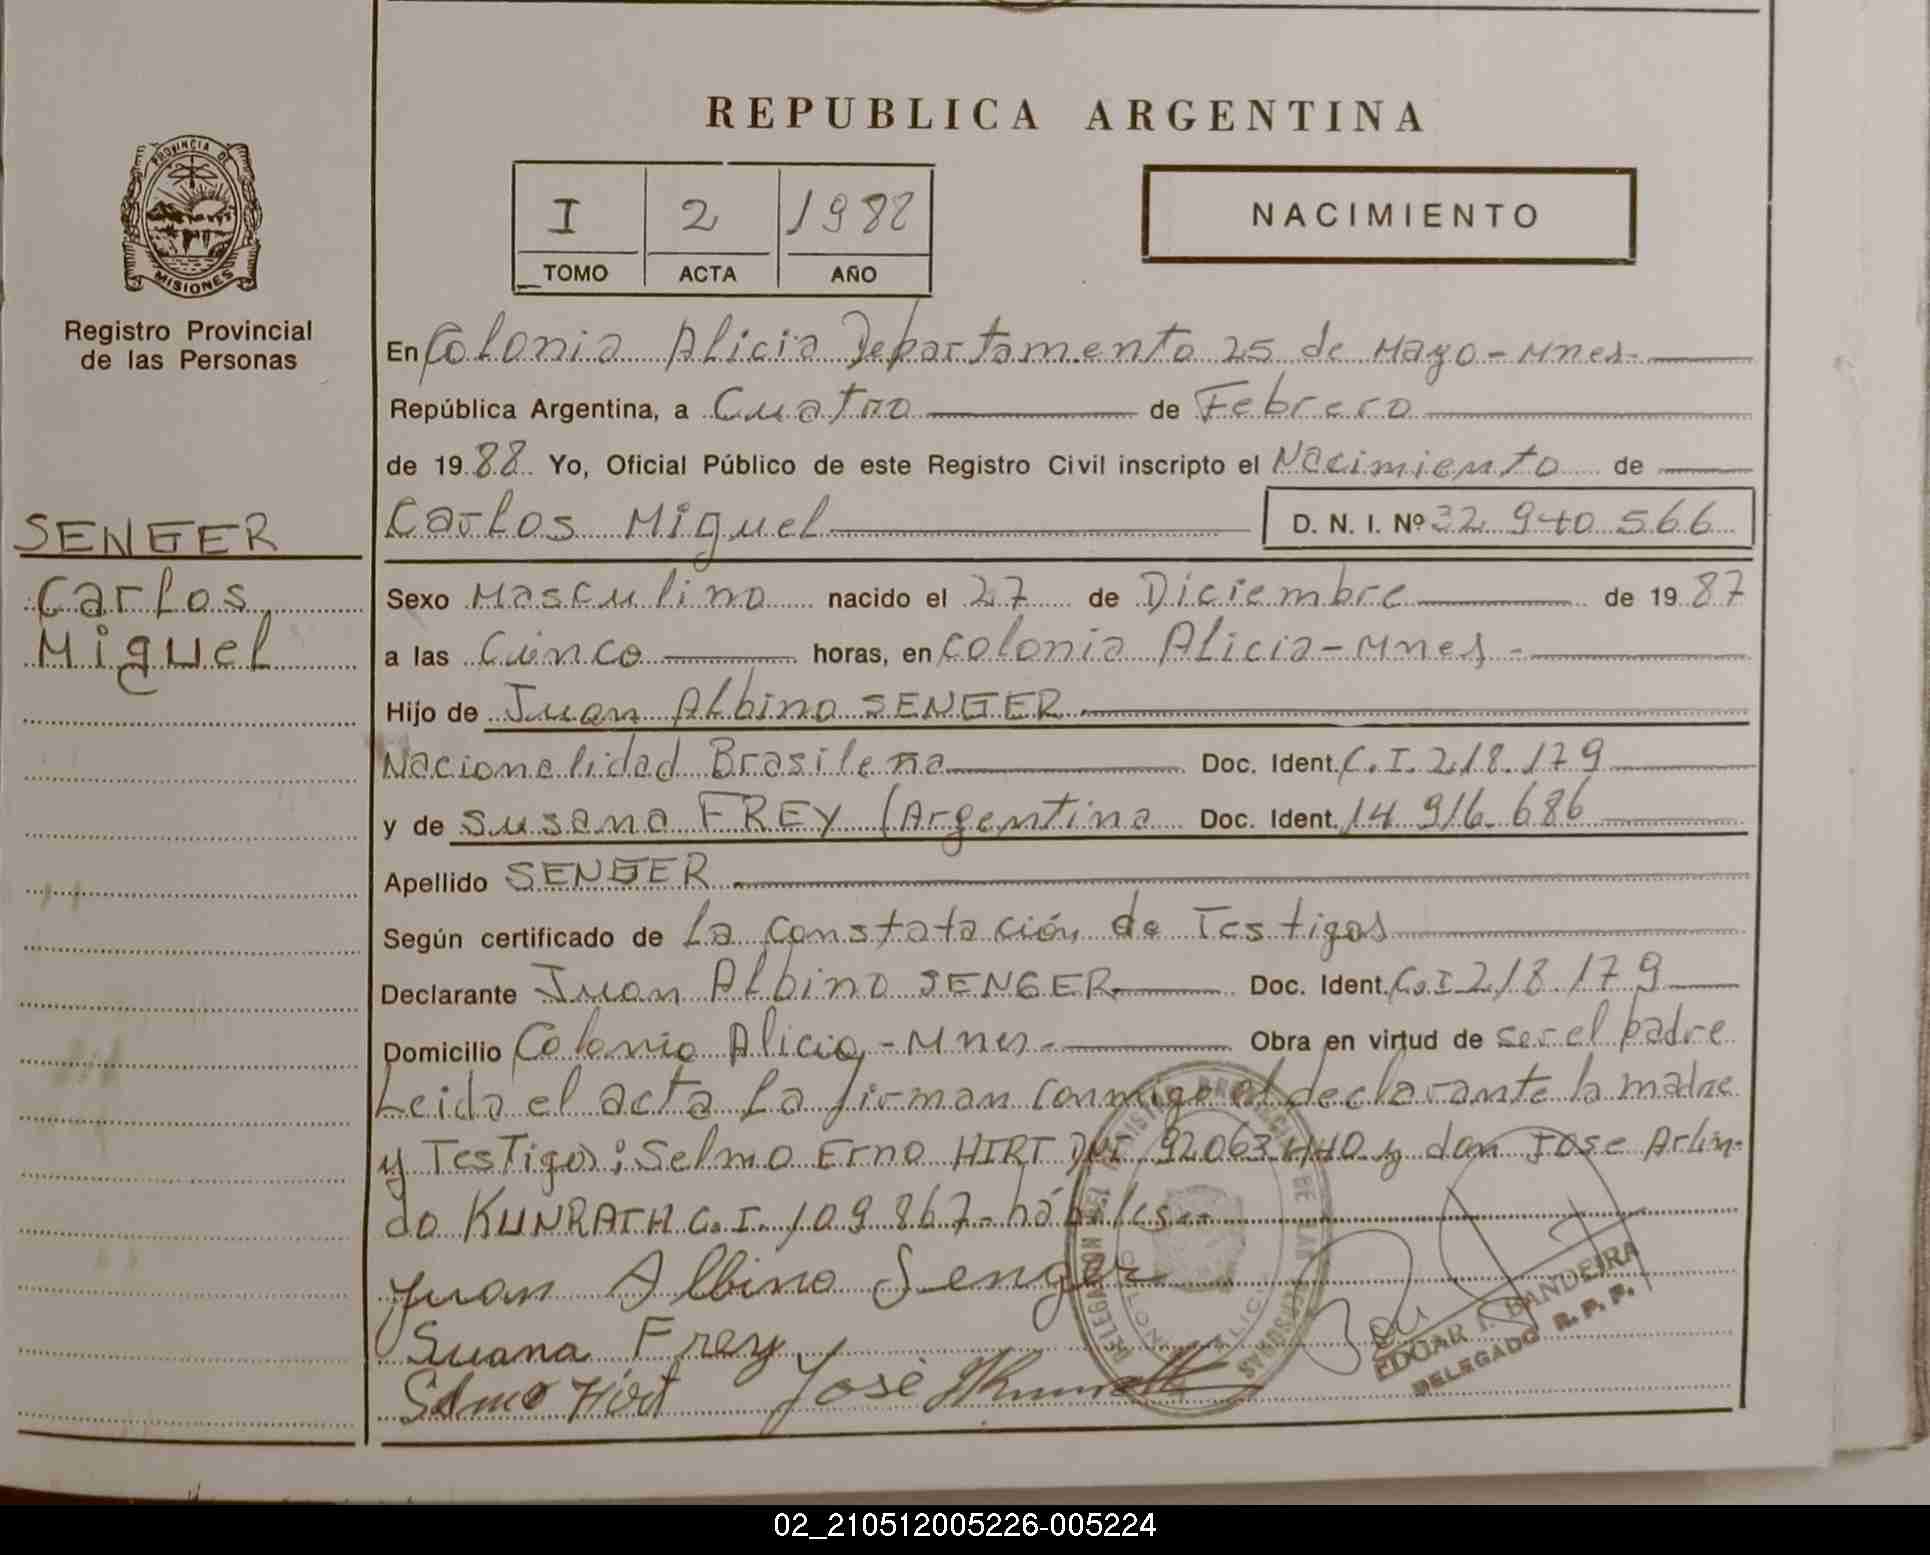 REPUBLICA ARGENTINA
PROVINCIA DE
MISIONES
Registro Provincial
de las Personas
I 2 1988
TOMO ACTA AÑO
NACIMIENTO
SENGER
Carlos
Miguel
En Colonia Alicia Departamento 25 de Mayo - Mnes-
República Argentina, a Cuatro de Febrero
de 19 88 Yo, Oficial Público de este Registro Civil inscripto el Nacimiento de
Carlos Miguel D. N. I. Nº 32 940 566
Sexo Masculino nacido el 27 de Diciembre de 19 87
a las Cinco horas, en Colonia Alicia - Mnes -
Hijo de Juan Albino SENGER
Nacionalidad Brasileña Doc. Ident. C.I. 218.179
y de Susana FREY (Argentina Doc. Ident. 14 916.686
Apellido SENGER
Según certificado de La Constatación de Testigos
Declarante Juan Albino SENGER Doc. Ident. C.I 218.179
Domicilio Colonia Alicia - Mnes - Obra en virtud de ser el padre
Leida el acta la firman conmigo el declarante la madre
y Testigos; Selmo Erno HIRT DNI 92063440 y don Jose Arlin-
do KUNRATH C.I. 109.867- hábiles.-
Juan Albino Senger
Suana Frey
Selmo Hirt José
EDUAR I. BANDEIRA
DELEGADO R. P. P.
02_210512005226-005224